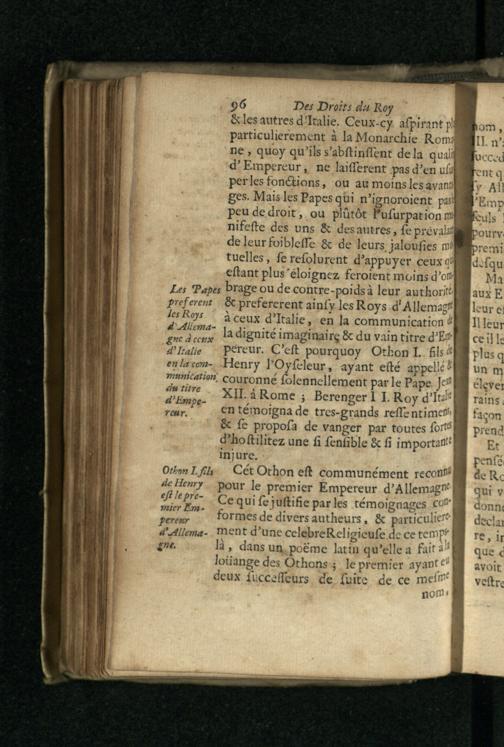 96 Des Droits du Roy
& les autres d'Italie. Ceux-cy aſpirant
particulierement à la Monarchie Rom
ne, quoy qu'ils s'abſtinſſent de la quali
d'Empereur, ne laiſſerent pas d'en uſu
per les fonctions, ou au moins les avan
ges. Mais les Papes qui n'ignoroient pas
peu de droit, ou plûtôt l'uſurpation ma
nifeſte des uns & des autres, ſe prévalan
de leur foibleſſe & de leurs jalouſies mu
tuelles, ſe reſolurent d'appuyer ceux qu
eſtant plus éloignez feroient moins d'om
brage ou de contre-poids à leur authorité,
& prefererent ainſy les Roys d'Allemagne
à ceux d'Italie, en la communication de
la dignité imaginaire & du vain titre d'Em-
pereur. C'eſt pourquoy Othon I. fils de
Henry l'Oyſeleur, ayant eſté appellé &
couronné ſolennellement par le Pape Jean
XII. à Rome ; Berenger I I. Roy d'Italie
en témoigna de tres-grands reſſentiments,
& ſe propoſa de vanger par toutes ſortes
d'hoſtilitez une ſi ſenſible & ſi importante
injure.
Les Papes
preferent
les Roys
d'Allema-
gne à ceux
d'Italie
en la com-
munication
du titre
d'Empe-
reur.
Cét Othon eſt communément reconnu
pour le premier Empereur d'Allemagne.
Ce qui ſe juſtifie par les témoignages con-
formes de divers autheurs, & particuliere-
ment d'une celebre Religieuſe de ce temps-
là, dans un poëme latin qu'elle a fait à la
loüange des Othons ; le premier ayant eu
deux ſucceſſeurs de ſuite de ce meſme
nom,
Othon I. fils
de Henry
eſt le pre-
mier Em-
pereur
d'Allema-
gne.
nom,
II. n'
ſucced
rent q
ſy All
l'Emp
ſeuls
pourv
premi
deſqu
Ma
aux E
leur e
Il leur
ce il l
plus q
un m
élever
rains
façon
prend
Et
penſé
de Ro
qui v
donn
declar
re, in
que d
avoit
veſtre